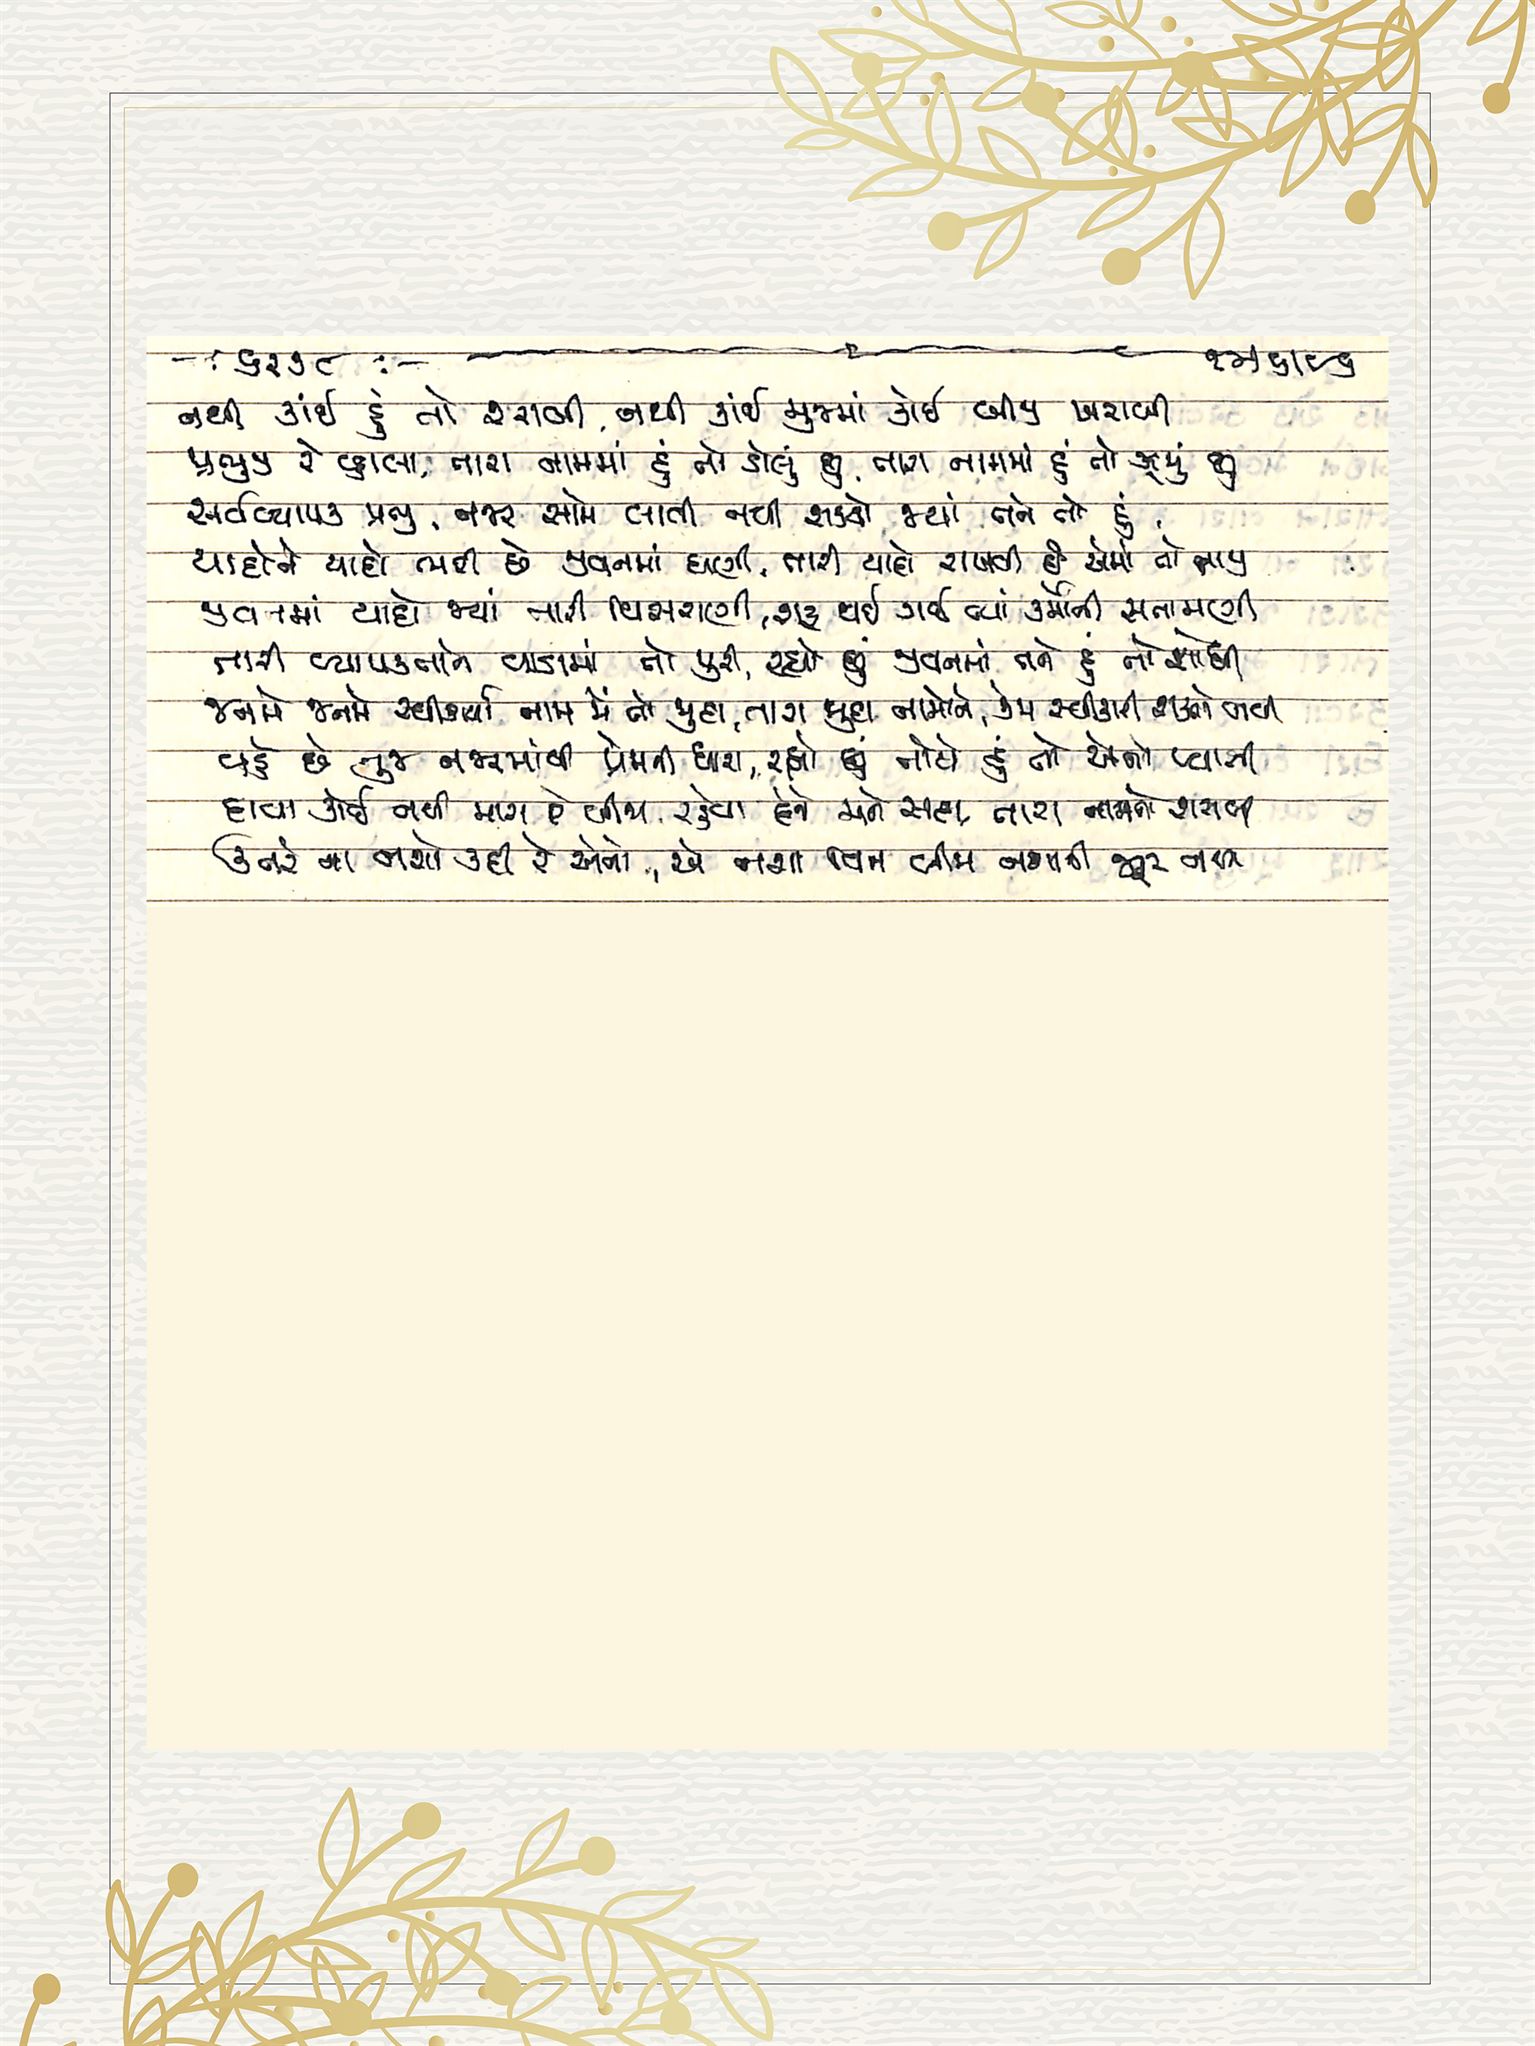 નથી કાંઈ હું તો શરાબી, નથી કાંઈ મુજમાં કોઈ બીજી ખરાબી
પ્રભુજી રે વ્હાલા, તારા નામમાં હું તો ડોલું છું, તારા નામમાં હું તો ઝૂમું છું
સર્વવ્યાપક પ્રભુ, નજર સામે લાવી નથી શક્યો જ્યાં તને તો હું,
યાદોને યાદો ભરી છે જીવનમાં ઘણી, તારી યાદો રાખવી છે એમાં તો બાપુ
જીવનમાં યાદો જ્યાં તારી વિસરાણી, શરૂ થઈ ગઈ ત્યાં કર્મોની સતામણી
તારી વ્યાપકતાને વાડામાં તો પુરી, રહ્યો છું જીવનમાં તને હું તો શોધી
જનમે જનમે સ્વીકાર્યા નામ મેં તો જુદા, તારા જુદા નામોને, કેમ સ્વીકારી શક્તો નથી
વહે છે તુજ નજરમાંથી પ્રેમની ધારા, રહ્યો છું તોયે હું તો એનો પ્યાસી
દાવા કોઈ નથી મારા રે બીજા, રહેવા દેજે મને સદા, તારા નામનો શરાબી
ઉતરે ના નશો કદી રે એનો, એ નશા બિન બીજા નશાની જરૂર નથી